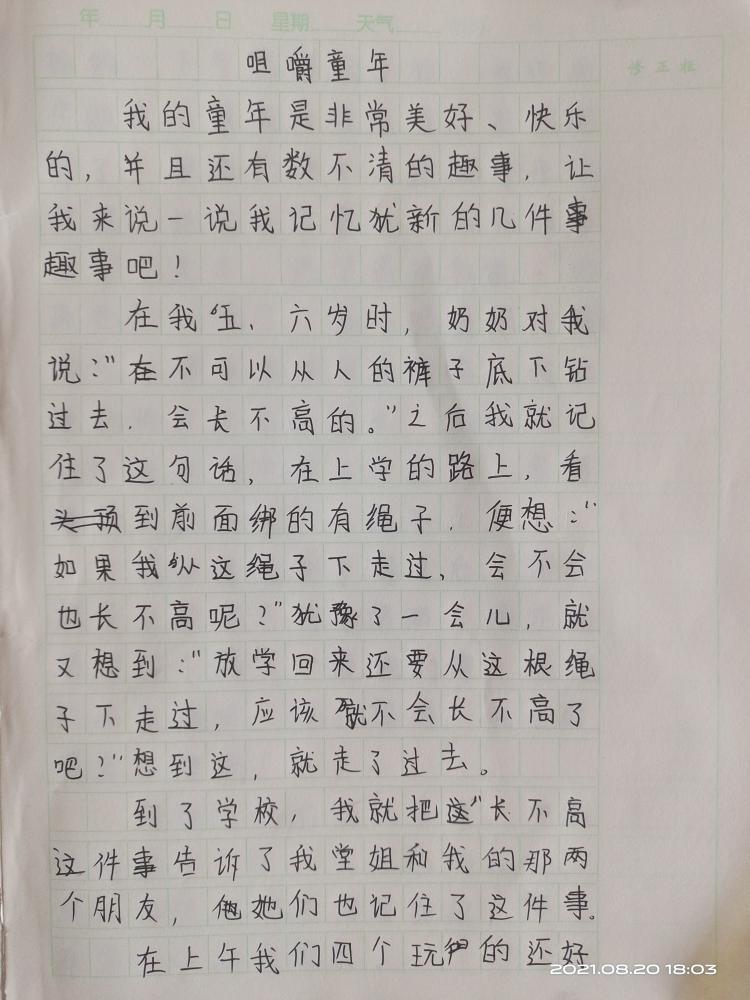 年 月 日 星期 天气
咀嚼童年
修正栏
我的童年是非常美好、快乐
的，并且还有数不清的趣事，让
我来说一说我记忆犹新的几件事
趣事吧！
在我五、六岁时，奶奶对我
说：“在不可以从人的裤子底下钻
过去，会长不高的。”之后我就记
住了这句话，在上学的路上，看
到前面绑的有绳子，便想：“
如果我从这绳子下走过，会不会
也长不高呢？”犹豫了一会儿，就
又想到：“放学回来还要从这根绳
子下走过，应该就不会长不高了
吧？”想到这，就走了过去。
到了学校，我就把这“长不高
这件事告诉了我堂姐和我的那两
个朋友，她们也记住了这件事。
在上午我们四个玩的还好
2021.08.20 18:03